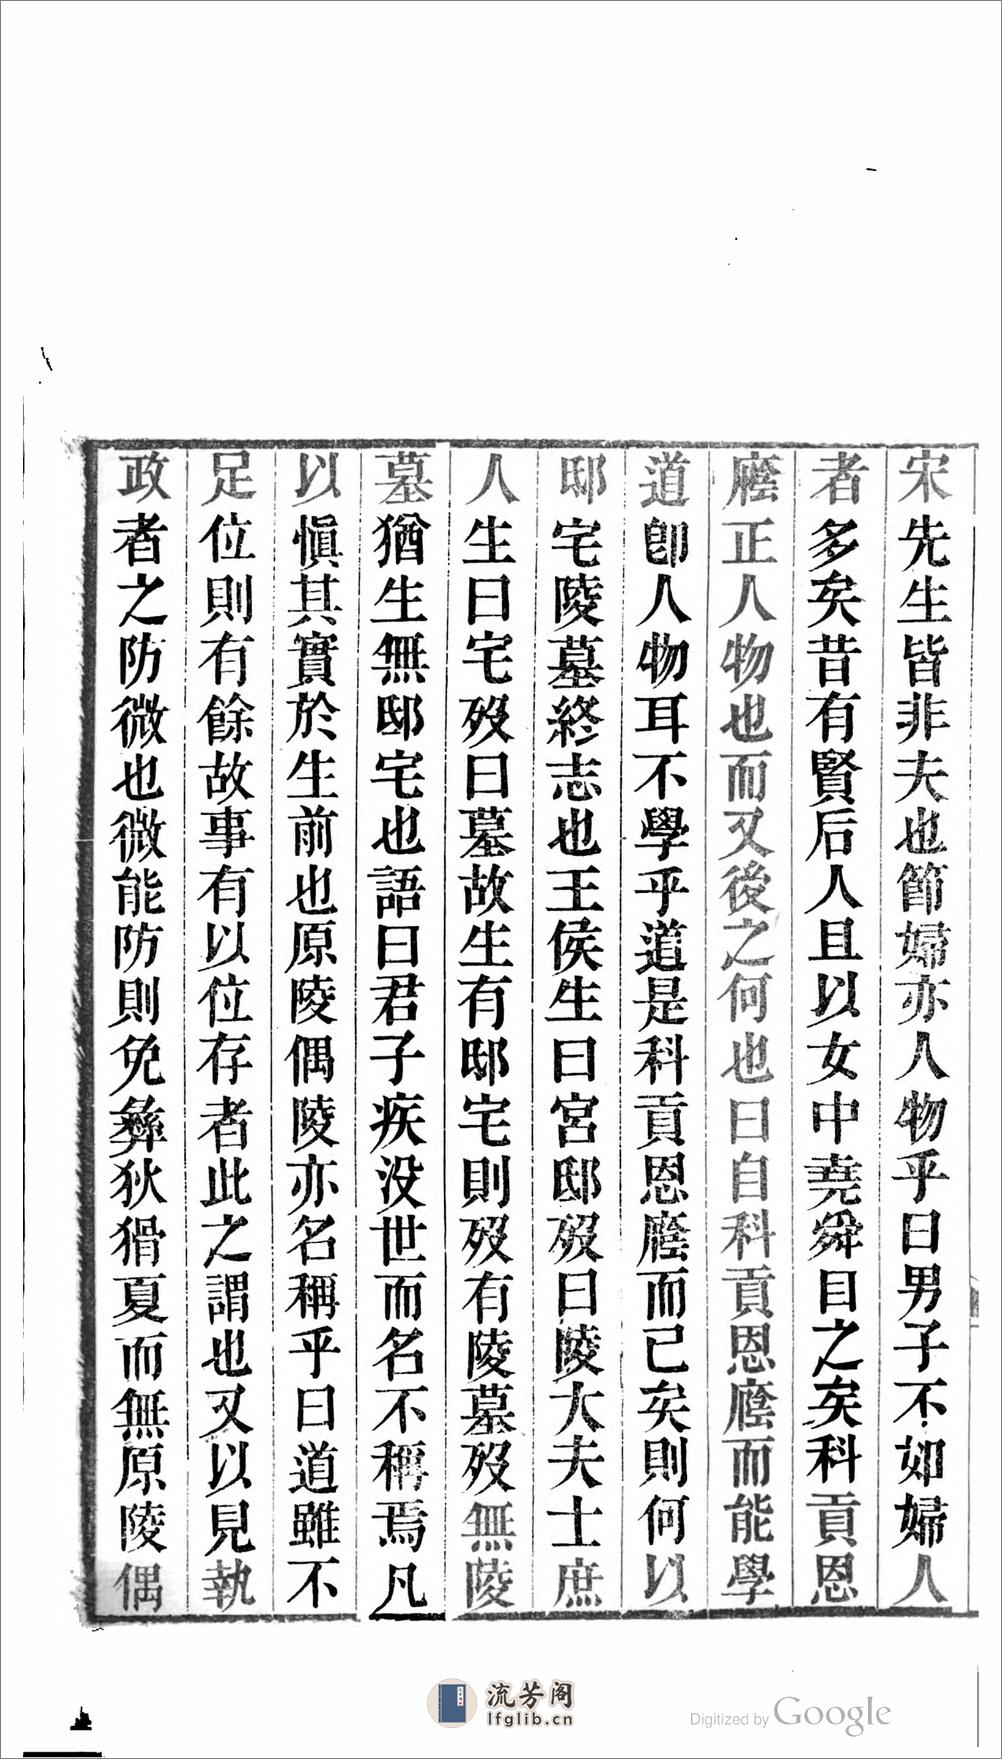 宋先生皆非夫也節婦亦人物乎曰男子不如婦人
者多矣昔有賢后人且以女中堯舜目之矣科貢恩
廕正人物也而又後之何也曰自科貢恩廕而能學
道卽人物耳不學乎道是科貢恩廕而已矣則何以
邸宅陵墓終志也王侯生曰宮邸歿曰陵大夫士庶
人生曰宅歿曰墓故生有邸宅則歿有陵墓歿無陵
墓猶生無邸宅也語曰君子疾没世而名不稱焉凡
以愼其實於生前也原陵偶陵亦名稱乎曰道雖不
足位則有餘故事有以位存者此之謂也又以見執
政者之防微也微能防則免彝狄猾夏而無原陵偶
流芳阁
lfglib.cn
Digitized by Google